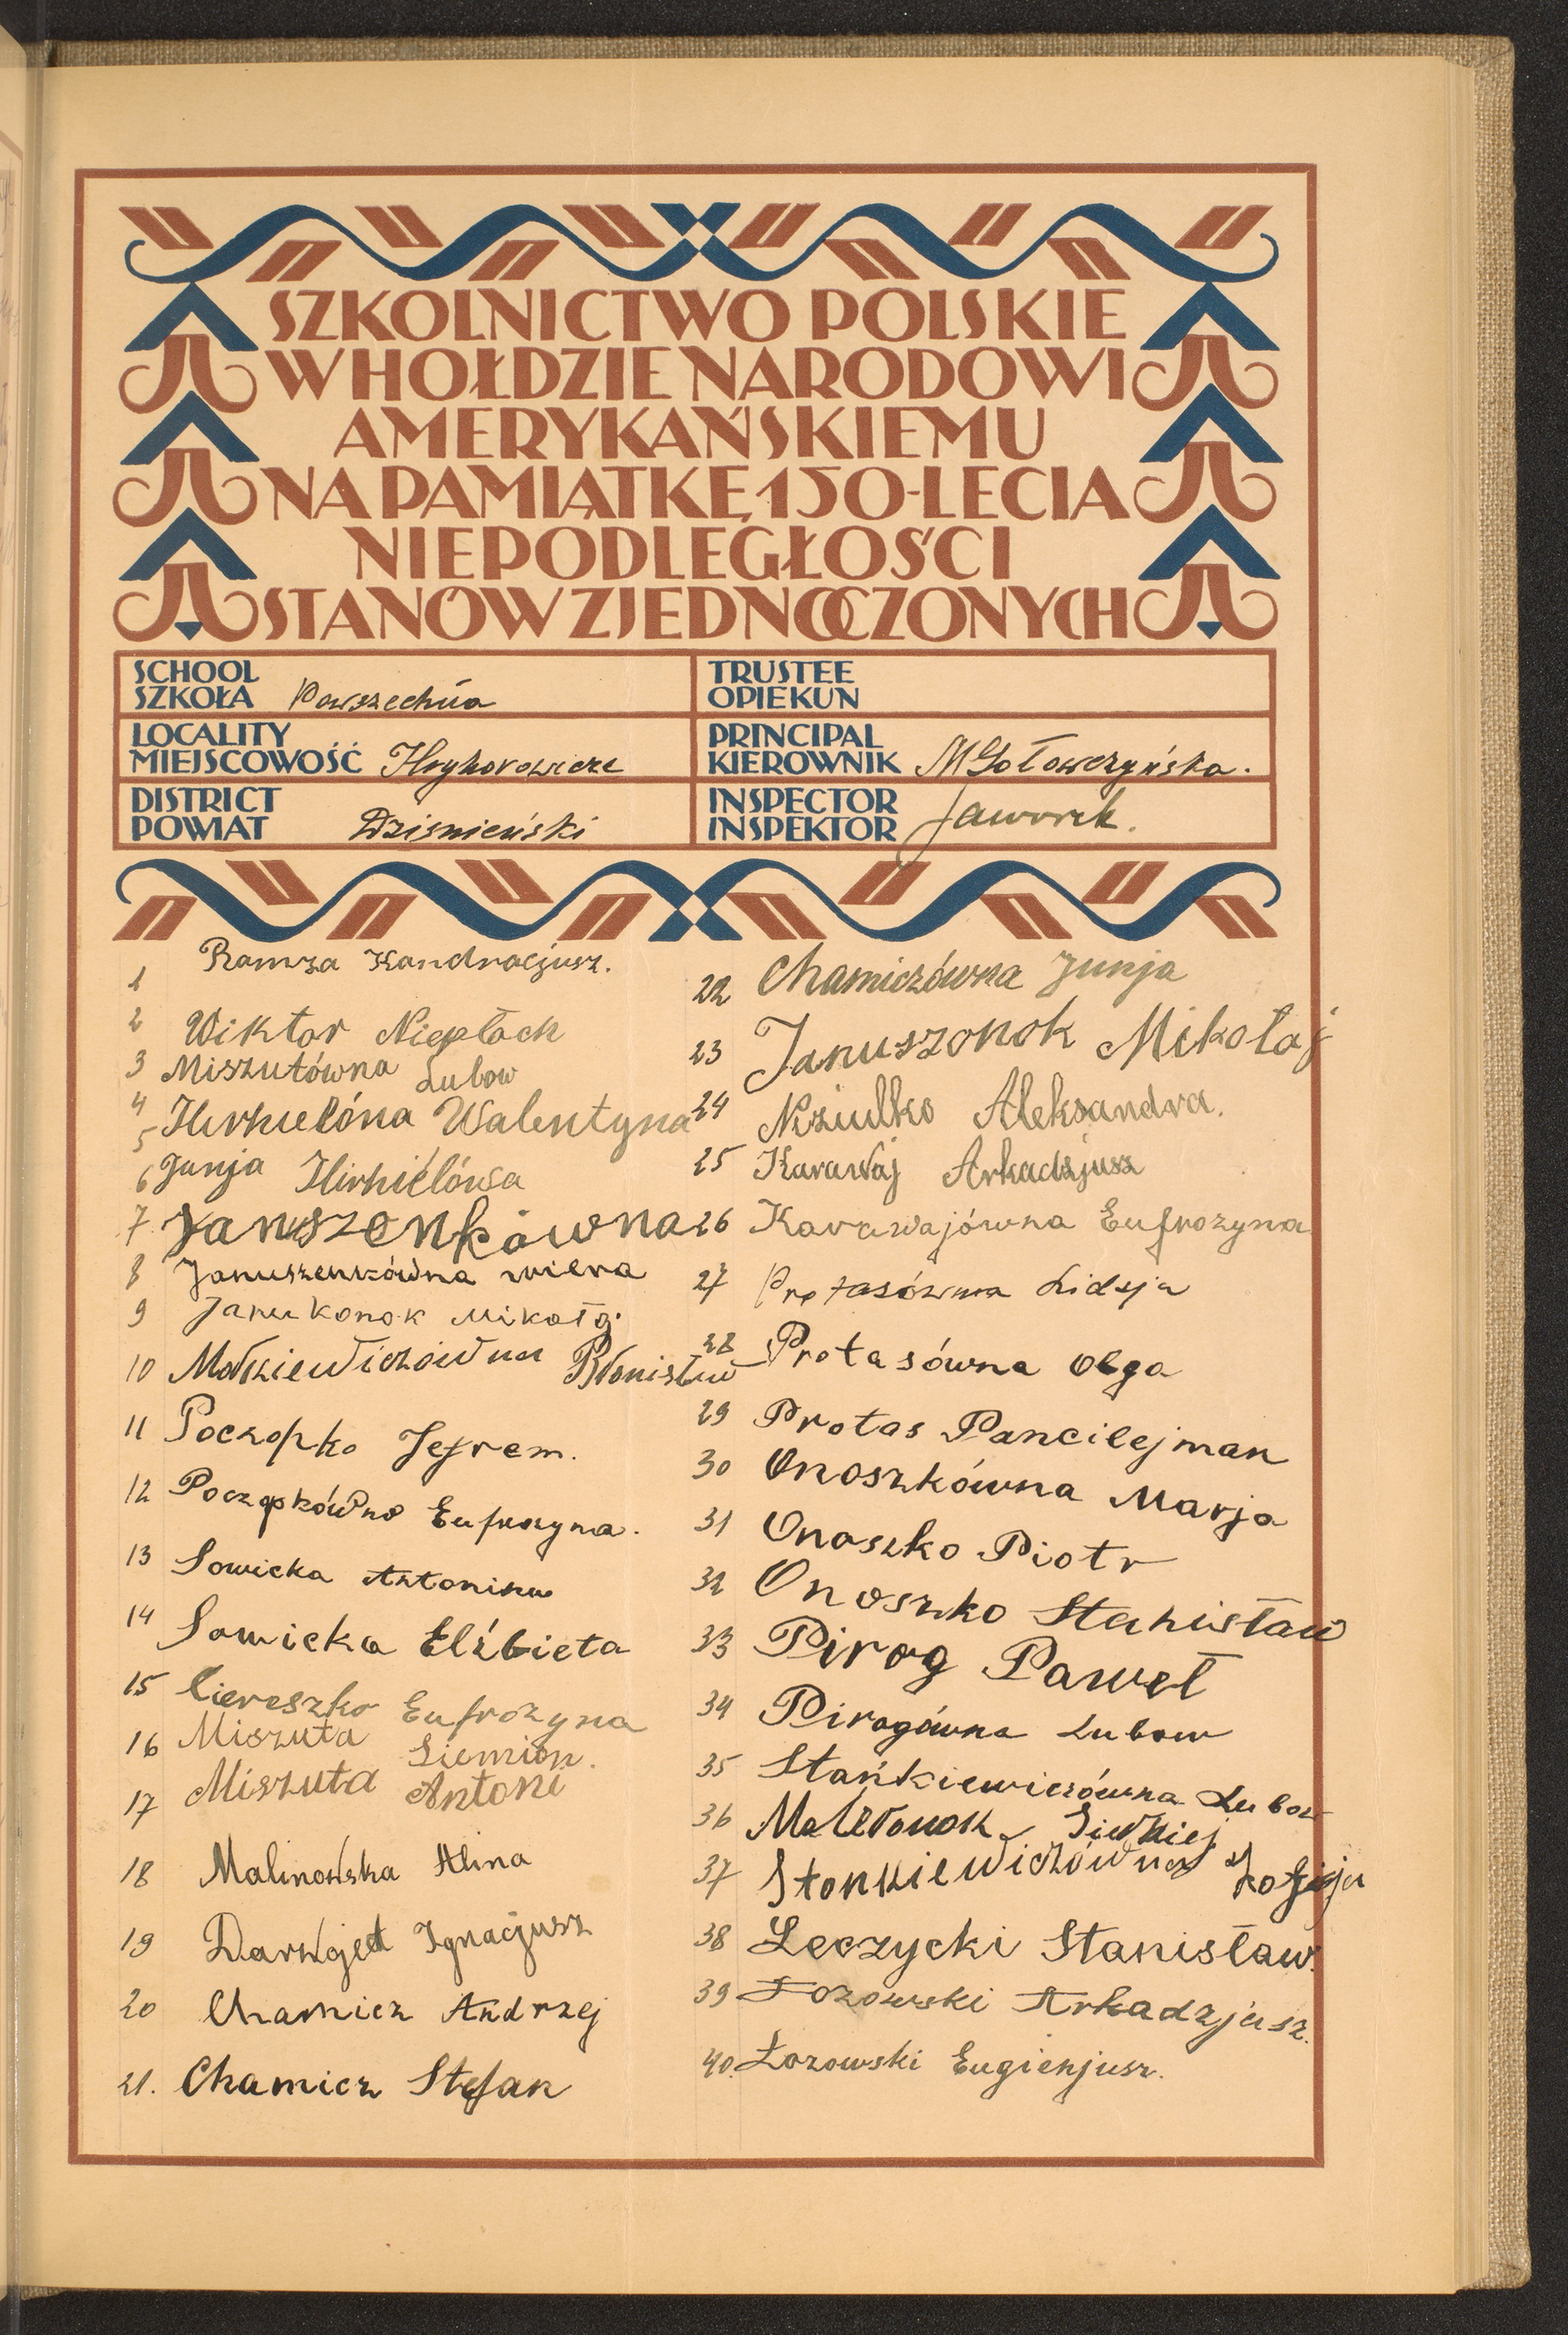 SZKOLNICTWO POLSKIE
W HOŁDZIE NARODOWI
AMERYKAŃSKIEMU
NA PAMIĄTKĘ 150-LECIA
NIEPODLEGŁOŚCI
STANÓW ZJEDNOCZONYCH
SCHOOL
SZKOŁA Powszechna
LOCALITY
MIEJSCOWOŚĆ Hryhorowicze
DISTRICT
POWIAT Dziśnieński
TRUSTEE
OPIEKUN
PRINCIPAL
KIEROWNIK M Gołowczyńska.
INSPECTOR
INSPEKTOR Jaworek.
1 Ramza Kandracjusz.
2 Wiktor Niepłach
3 Miszutówna Lubow
4 Hirhielóna Walentyna
5
6 Junja Hirhielówna
7 Januszenkówna
8 Januszenkówna wiera
9 Janukonok Mikołaj
10 Małkiewiczówna Bronisław
11 Poczopko Jefrem.
12 Poczopkówna Eufrozyna.
13 Sowicka Antonina
14 Sowicka Elżbieta
15 Ciereszko Eufrozyna
16 Miszuta Siemion.
17 Miszuta Antoni
18 Malinowska Alina
19 Ignacjusz
20 Chamicz Andrzej
21. Chamicz Stefan
22 Chamiczówna Junja
23 Januszonok Mikołaj
24 Niziulko Aleksandra.
25 Karawaj Arkadzjusz
26 Karawajówna Eufrozyna
27 Protasówna Lidzja
28 Protasówna Olga
29 Protas Pancilejman
30 Onoszkówna Marja
31 Onoszko Piotr
32 Onoszko Stanisław
33 Pirog Paweł
34 Pirogówna Lubow
35 Stańkiewiczówna Lubow
36
37 Stankiewiczówna
38 Leczycki Stanisław.
39 Łozowski Arkadzjusz.
40. Łozowski Eugienjusz.